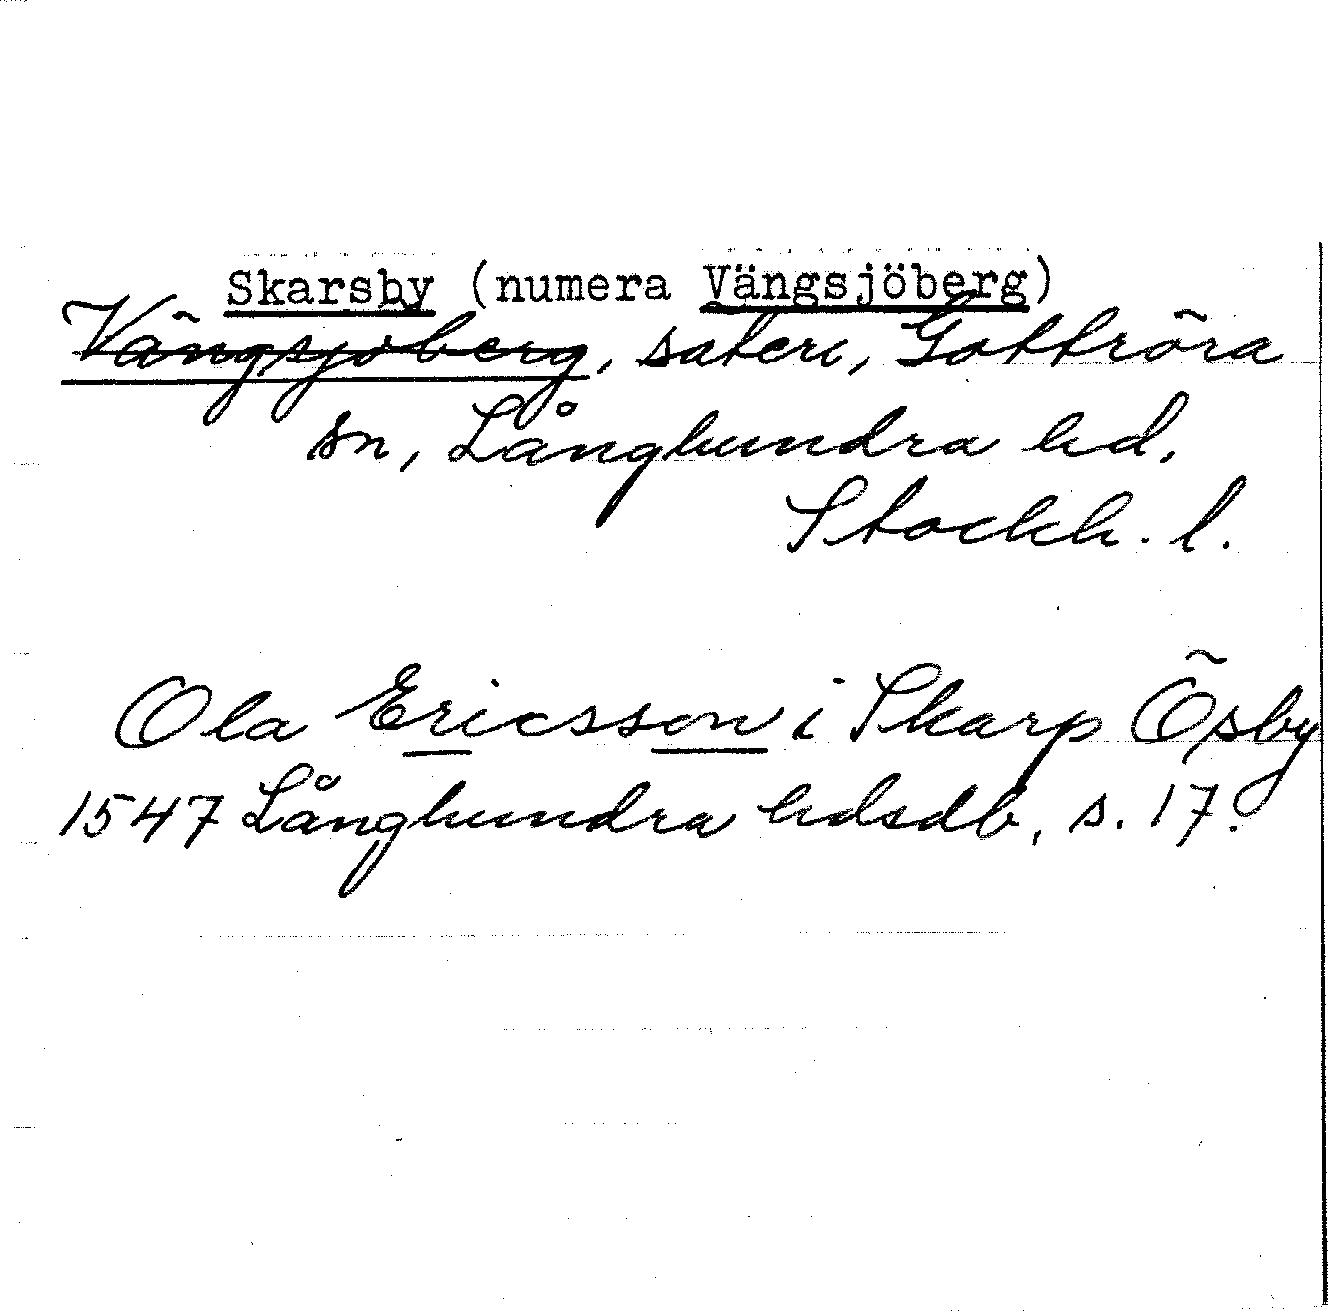 Skarsby (numera Vängsjöberg)
Vängsjöberg, säteri, Gottröra
sn, Långhundra hd.
Stockh. l.
Ola Ericsson i Skarp Ösby
1547 Långhundra hdsdb, s. 17.